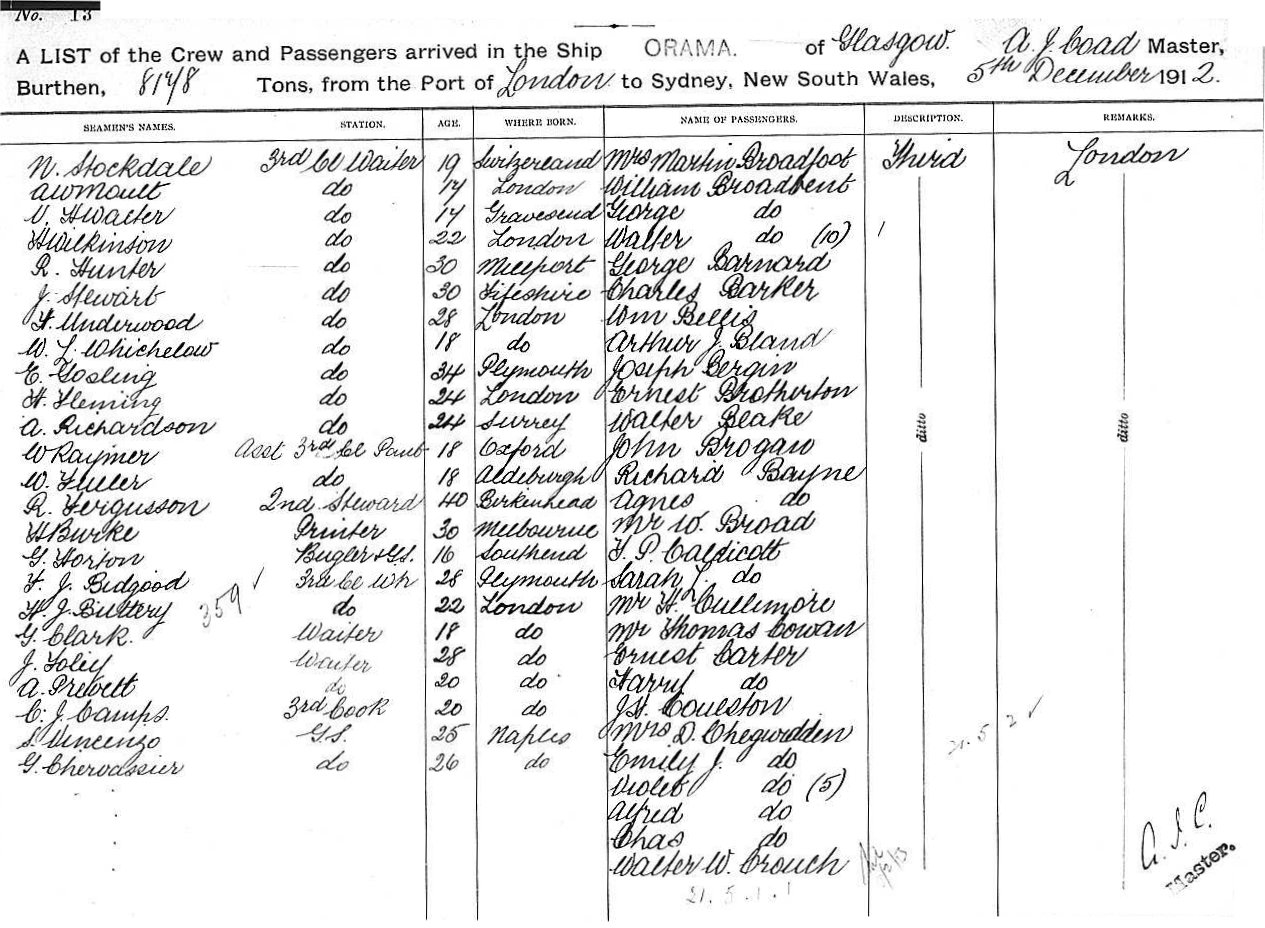 No. 13
A LIST of the Crew and Passengers arrived in the Ship ORAMA. of Glasgow. A. J. Coad Master,
Burthen, 8178 Tons, from the Port of London to Sydney, New South Wales, 5th December 1912.
SEAMEN'S NAMES. STATION. AGE. WHERE BORN. NAME OF PASSENGERS. DESCRIPTION. REMARKS.
N. Stockdale 3rd Cl Waiter 19 Switzerland Mrs Martin Broadfoot Third London
A W Moult do 17 London William Broadbent
V. H Walter do 17 Gravesend George do
H Wilkinson do 22 London Walter do (10) 1
R. Hunter do 30 Millport George Barnard
J. Stewart do 30 Fifeshire Charles Barker
F. Underwood do 28 London Wm Bellis
W. L. Whichelow do 18 do Arthur J. Bland
E. Gosling do 34 Plymouth Joseph Bergin
H. Fleming do 24 London Ernest Brotherton
A. Richardson do 24 Surrey Walter Blake ditto ditto
W Raymer Asst 3rd Cl Pant 18 Oxford John Brogan
W. Fuller do 18 Aldeburgh Richard Bayne
R. Fergusson 2nd Steward 40 Birkenhead Agnes do
H Burke Printer 30 Melbourne Mr W. Broad
G. Horton Bugler & G.S. 16 Southend F. P. Caldicott
F. J. Bidgood 3rd Cl Wtr 28 Plymouth Sarah L. do
H. J. Buttery 359 do 22 London Mr H. Cullimore
G. Clark. Waiter 18 do Mr Thomas Cowan
J. Foley Waiter 28 do Ernest Carter
A. Prevett do 20 do Harry do
C. J. Camps. 3rd Cook 20 do J. H. Coulston
S. Vincenzo G.S. 25 Naples Mrs D. Chegwidden 21. 5 2
G. Chervassier do 26 do Emily J. do
Violet do (5)
Alfred do
Chas do
Walter W. Crouch
21. 5. 1. 1
A. J. C.
Master.